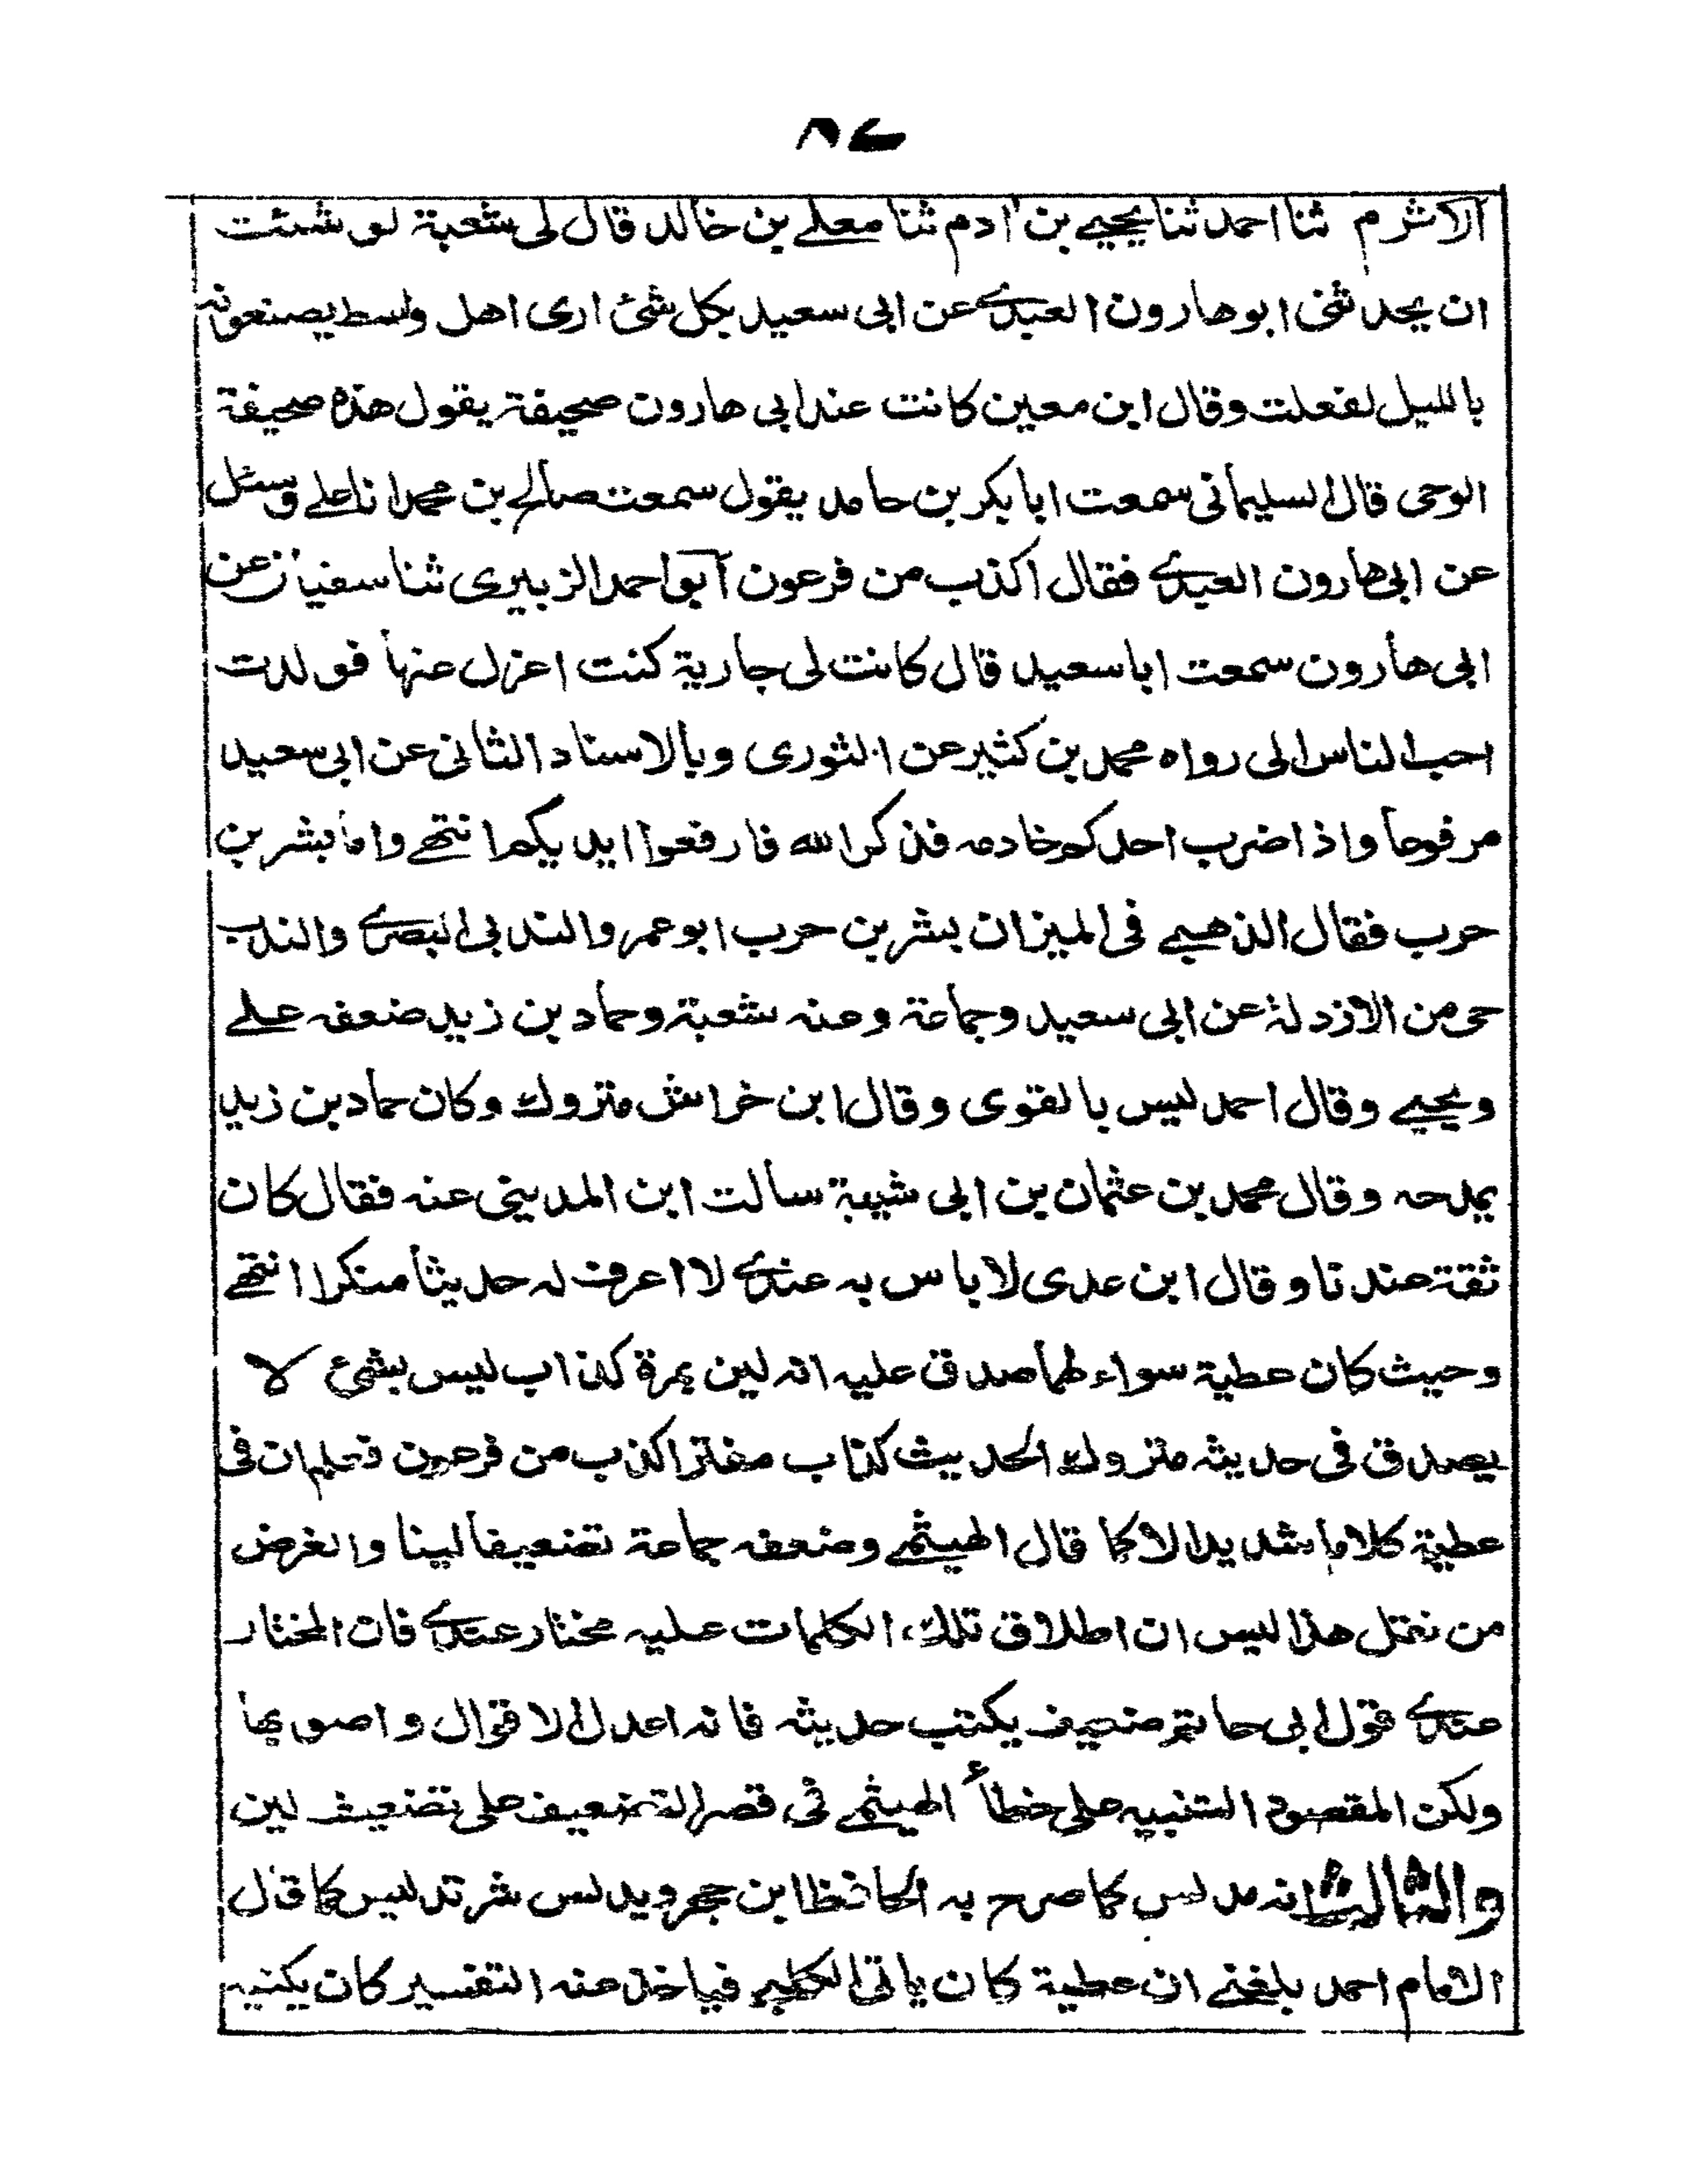 ٨٤
الاثرم ثنا احمد ثنا يحيے بن ادم ثنا معلے بن خالد قال لى شعبة لو شئت
ان يحدثنى ابو هارون العبدے عن ابى سعيد بكل شئ ارى اهل واسط يصنعونه
بالليل لفعلت وقال ابن معين كانت عند ابى هارون صحيفة يقول هذه صحيفة
الوحى قال السليمانى سمعت ابا بكر بن حامد يقول سمعت صالح بن محمد انا على وسئل
عن ابى هارون العبدے فقال اكذب من فرعون ابو احمد الزبيرى ثنا سفيان عن
ابى هارون سمعت ابا سعيد قال كانت لى جارية كنت اعزل عنها فولدت
احب الناس الى رواه محمد بن كثير عن الثورى وبالاسناد الثانى عن ابى سعيد
مرفوعا واذا ضرب احدكم خادمه فذكر الله فارفعوا ايديكم انتهے واما بشر بن
حرب فقال الذهبے فى الميزان بشر بن حرب ابو عمرو الندبى البصرے والندب
حى من الازد له عن ابى سعيد وجماعة وعنه شعبة وحماد بن زيد ضعفه علے
ويحيے وقال احمد ليس بالقوى وقال ابن خراش متروك وكان حماد بن زيد
يمدحه وقال محمد بن عثمان بن ابى شيبة سالت ابن المدينى عنه فقال كان
ثقة عندنا وقال ابن عدى لا باس به عندے لا اعرف له حديثا منكرا انتهے
وحيث كان عطية سواء لهما صدق عليه انه لين بمرة كذاب ليس بشئ لا
يصدق فى حديثه متروك الحديث كذاب مفتر اكذب من فرعون فعلم ان فى
عطية كلاما شديدا لا كما قال الهيثمے وضعفه جماعة تضعيفا لينا والغرض
من نقل هذا ليس ان اطلاق تلك الكلمات عليه مختار عندے فان المختار
عندے قول ابى حاتم ضعيف يكتب حديثه فانه اعدل الاقوال واصوبها
ولكن المقصود التنبيه على خطأ الهيثمے فى قصر التضعيف على تضعيف لين
والثالث انه مدلس كما صرح به الحافظ ابن حجر ويدلس شر تدليس كما قال
الامام احمد بلغنے ان عطية كان ياتى الكلبے فياخذ عنه التفسير كان يكنيه